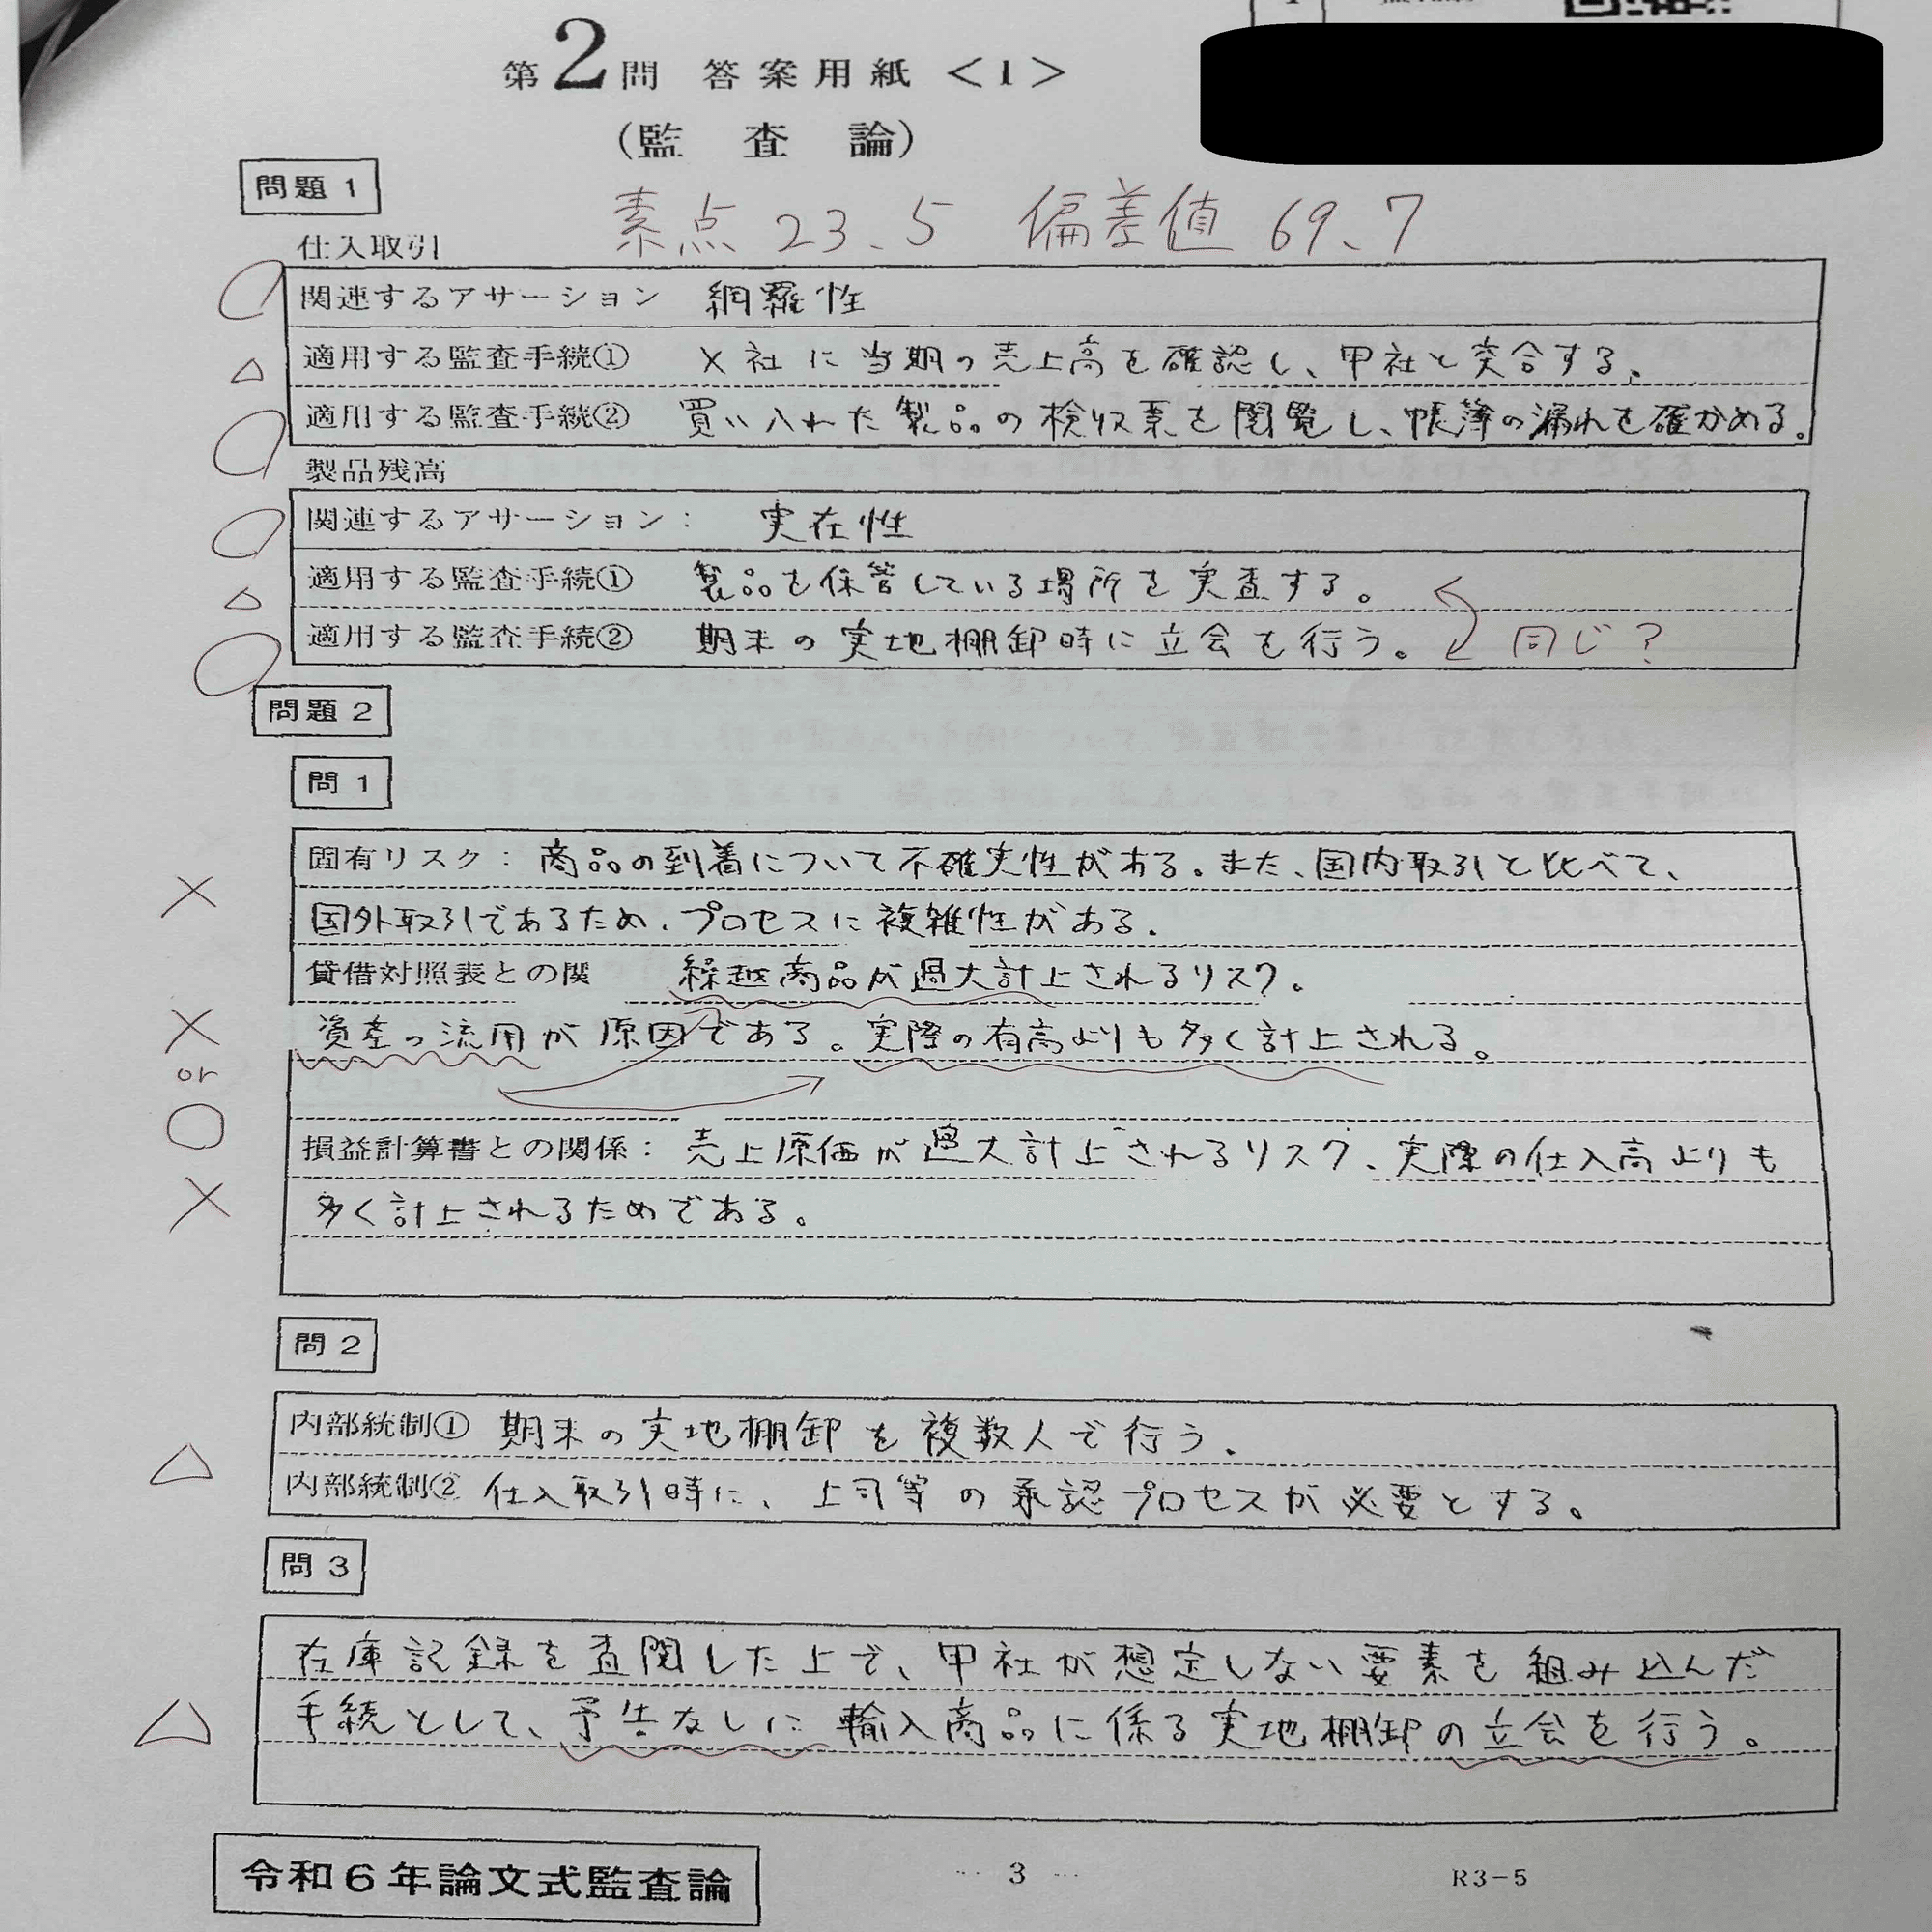 第2問 答案用紙<1>
(監査論)
問題1
素点 23.5 偏差値 69.7
仕入取引
関連するアサーション 網羅性
適用する監査手続① X社に当期の売上高を確認し、甲社と突合する。
適用する監査手続② 買い入れた製品の検収票を閲覧し、帳簿の漏れを確かめる。
製品残高
関連するアサーション: 実在性
適用する監査手続① 製品を保管している場所を実査する。
適用する監査手続② 期末の実地棚卸時に立会を行う。 同じ?
問題2
問1
固有リスク: 商品の到着について不確実性がある。また、国内取引と比べて、
国外取引であるため、プロセスに複雑性がある。
貸借対照表との関 繰越商品が過大計上されるリスク。
資産の流用が原因である。実際の有高よりも多く計上される。
or
損益計算書との関係: 売上原価が過大計上されるリスク、実際の仕入高よりも
多く計上されるためである。
問2
内部統制① 期末の実地棚卸を複数人で行う。
内部統制② 仕入取引時に、上司等の承認プロセスが必要とする。
問3
在庫記録を査閲した上で、甲社が想定しない要素を組み込んだ
手続として、予告なしに輸入商品に係る実地棚卸の立会を行う。
令和6年論文式監査論
3
R3-5